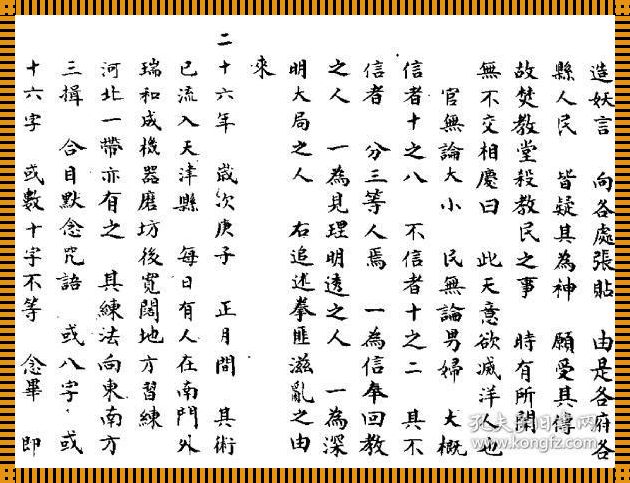 造妖言 向各處張貼 由是各府各
縣人民 皆疑其為神 願受其傳
故焚教堂殺教民之事 時有所聞
無不交相慶曰 此天意欲滅洋人也
官無論大小 民無論男婦 大概
信者十之八 不信者十之二 其不
信者 分三等人焉 一為信奉回教
之人 一為見理明透之人 一為深
明大局之人 右追述拳匪滋亂之由
來
二十六年 歲次庚子 正月間 其術
已流入天津縣 每日有人在南門外
瑞和成機器磨坊後寬闊地方習練
河北一帶亦有之 其練法向東南方
三揖 合目默念咒語 或八字 或
十六字 或數十字不等 念畢 即
孔夫子旧书网
www.kongfz.com